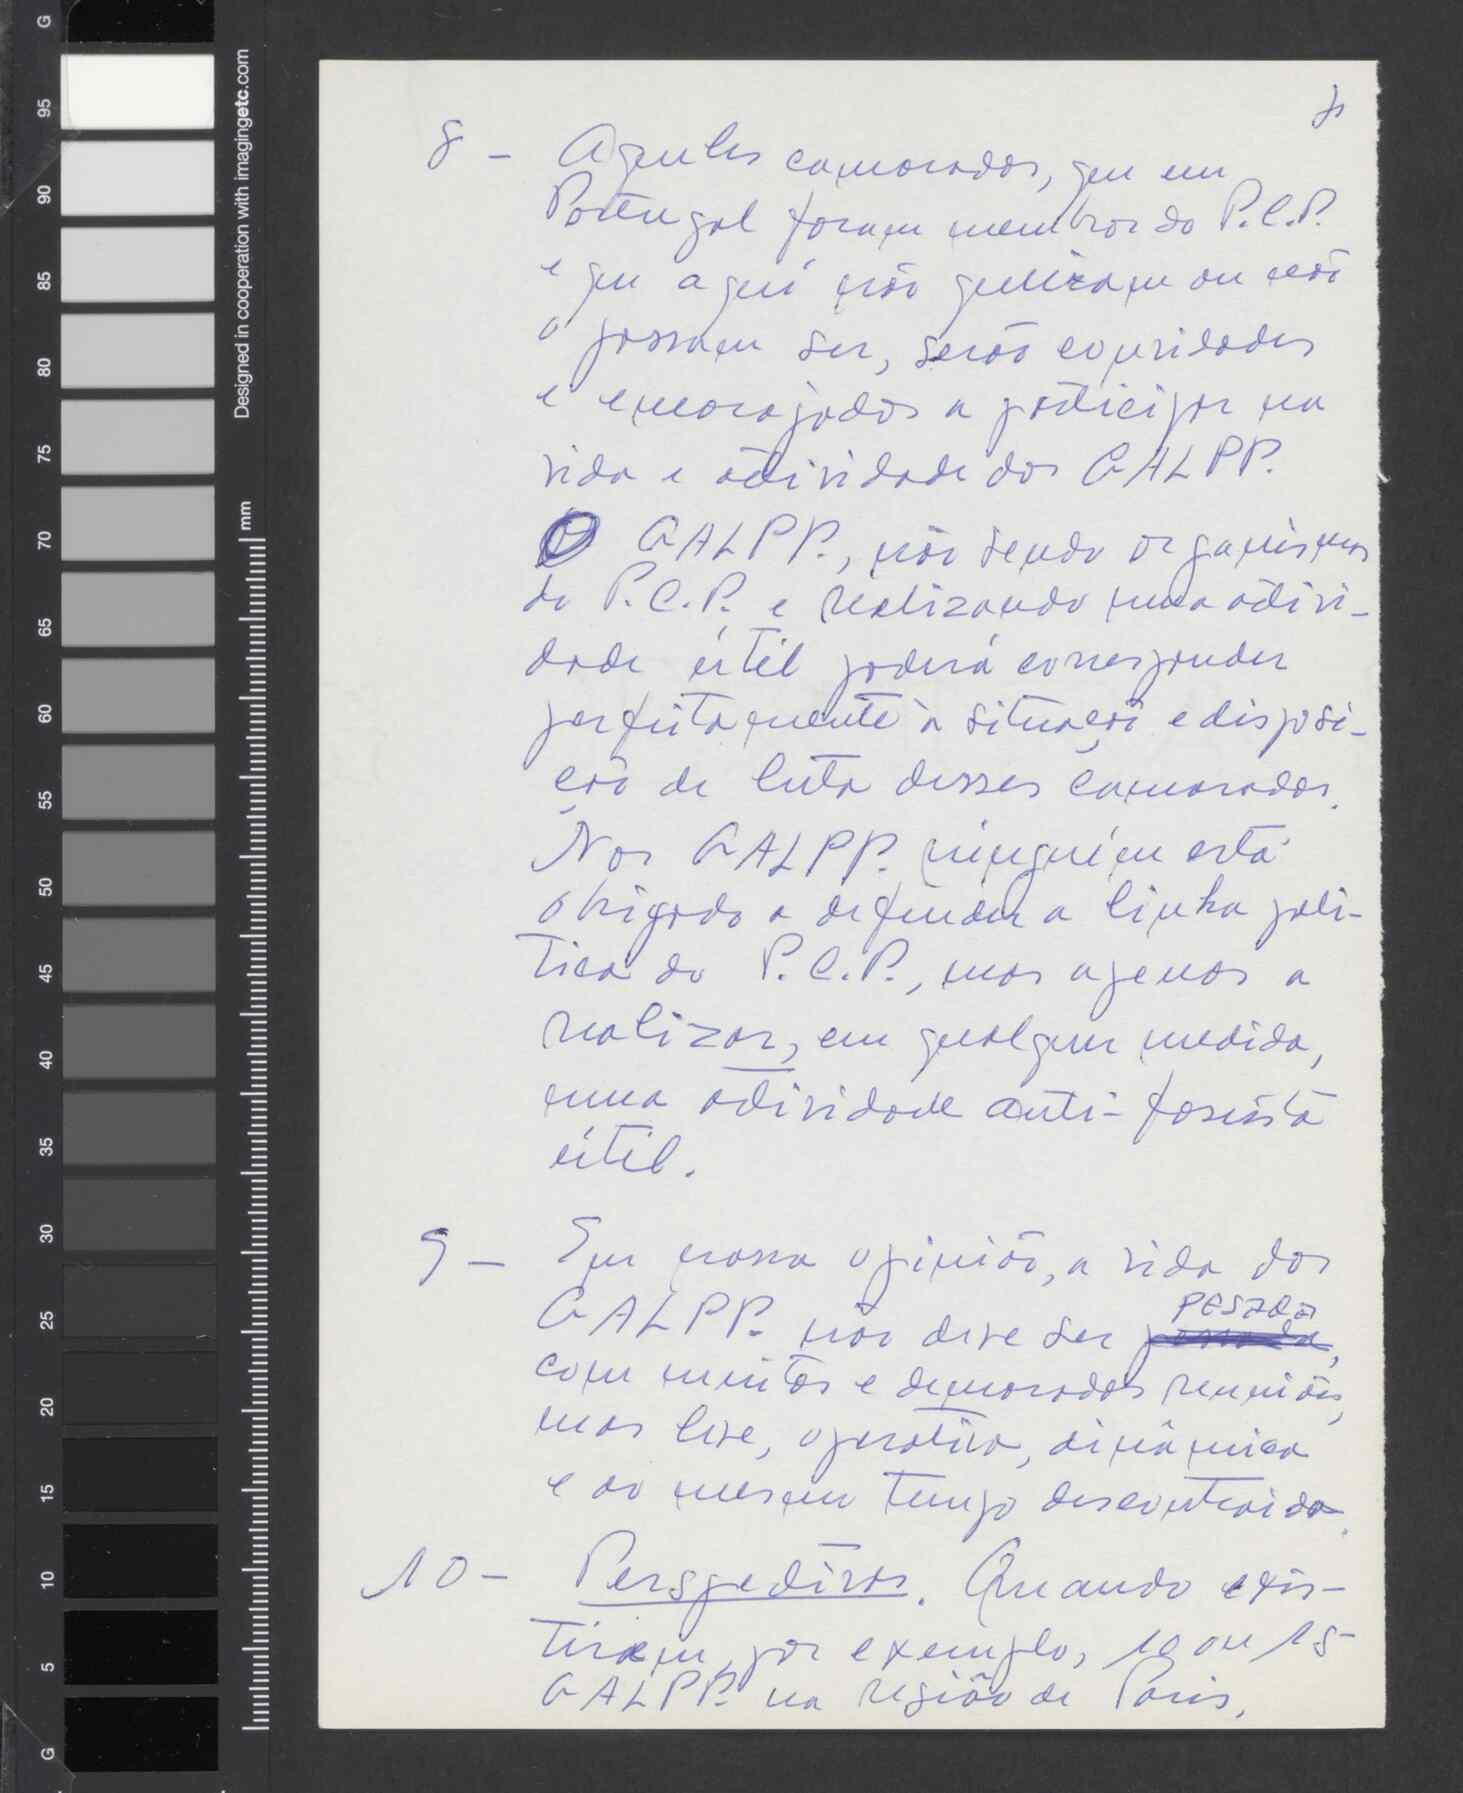 8 - Aqueles camaradas, que em
Portugal foram membros do P.C.P.
e que aqui não queiram ou não
o possam ser, serão convidados
e encorajados a participar na
vida e actividade dos GALPP.
O GALPP., não sendo organismos
do P.C.P. e realizando uma activi-
dade útil poderá corresponder
perfeitamente à situação e disposi-
ção de luta desses camaradas.
Nos GALPP. ninguém está
obrigado a defender a linha poli-
tica do P.C.P., mas apenas a
realizar, em qualquer medida,
uma actividade anti-fascista
útil.
9 - Em nossa opinião, a vida dos
GALPP. não deve ser PESADA,
com muitas e demoradas reuniões,
mas leve, operativa, dinâmica
e ao mesmo tempo descontraida.
10 - Perspectivas. Quando exis-
tirem, por exemplo, 10 ou 15
GALPP. na região de Paris,
G
95
90
85
80
75
70
65
60
55
50
45
40
35
30
25
20
15
10
5
G
Designed in cooperation with imagingetc.com
mm